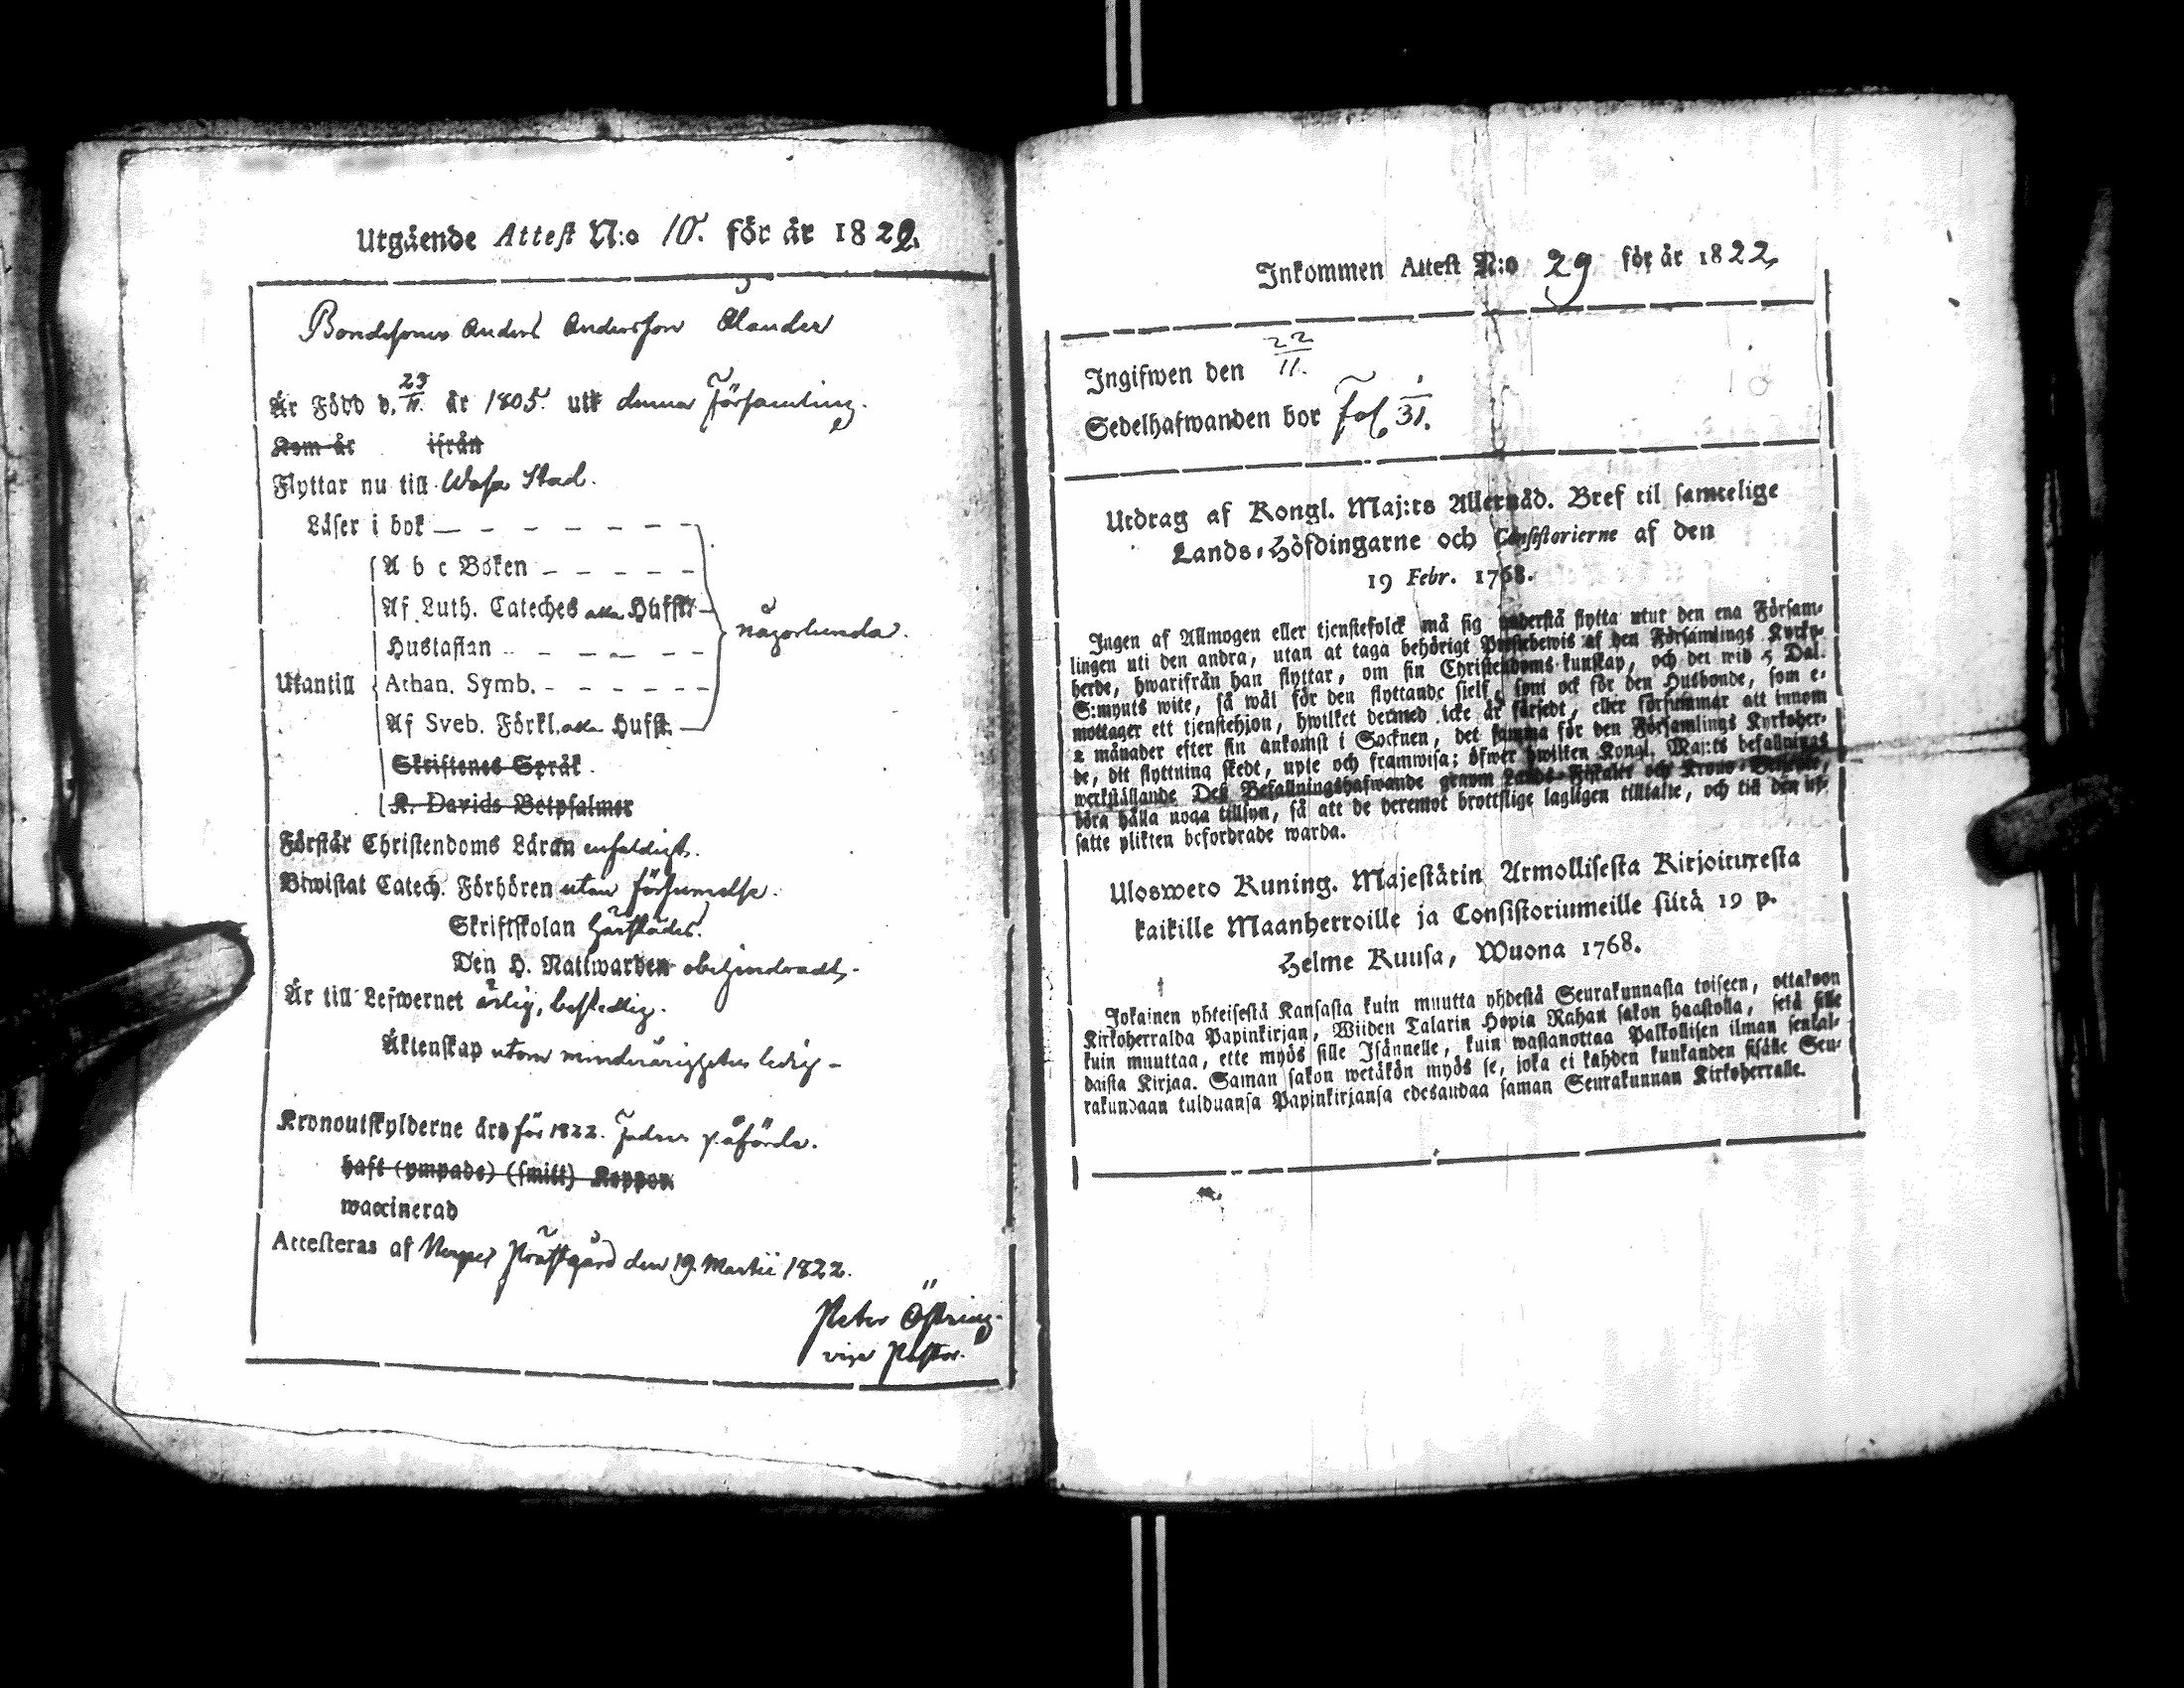 Utgående Attest N:o 10. för år 1822.
Bondesonen Anders Andersson Ölander
Är Född d. 23/11. år 1805. uti denna Församling.
Kom år ifrån
Flyttar nu till Wasa Stad.
Läser i bok
A b c Boken
Af Luth. Cateches alla Hufst.
Hustaflan
någorlunda.
Utantill Athan. Symb.
Af Sveb. Förkl. alla Hufst.
Skriftenes Språk
K. Davids Botpsalmer
Förstår Christendoms Läran enfaldigt.
Biwistat Catech. Förhören utan försummelse.
Skriftskolan härstädes.
Den H. Nattwarden obehindradt.
Är till Lefwernet ärlig, beskedlig.
Äktenskap utom minderårigheten ledig
Kronoutskylderne äro för 1822. Fadren påförde.
haft (ympade) (smitt) Koppor
waccinerad
Attesteras af Nerpes Prästgård den 19. Martii 1822.
Peter Östring.
vice Pastor.
Inkommen Attest N:o 29 för år 1822.
Ingifwen den 22/11.
Sedelhafwanden bor Fol. 31.
Utdrag af Kongl. Maj:ts Allernåd. Bref til samtelige
Lands-Höfdingarne och Consistorierne af den
19 Febr. 1768.
Ingen af Allmogen eller tjenstefolck må sig understå flytta utur den ena Församlingen
lingen uti den andra, utan at taga behörigt Prestebewis af den Församlings Kyrko-
herde, hwarifrån han flyttar, om sin Christendoms kunskap, och det wid 5 Dal.
S:mynts wite, så wäl för den flyttande sielf, som ock för den Husbonde, som e-
mottager ett tjenstehjon, hwilket dermed icke är försedt, eller försummar att innom
2 månader efter sin ankomst i Socknen, det samma för den Församlings Kyrkoher-
de, dit flyttning skedt, upte och framwisa; öfwer hwilken Kongl. Maj:ts befallnings
werkställande Deß Befallningshafwande genom Lands-Fiskaler och Krono-Betjente,
böra hålla noga tillsyn, så att de deremot brottslige lagligen tilltalte, och till den ut-
satte plikten befordrade warda.
Ulosweto Kuning. Majestätin Armollisesta Kirjoituxesta
kaikille Maanherroille ja Consistoriumeille siitä 19 p.
Helme Kuusa, Wuona 1768.
Jokainen yhteisestä Kansasta kuin muutta yhdestä Seurakunnasta toiseen, ottakoon
Kirkoherralda Papinkirjan, Wiiden Talarin Hopia Rahan sakon haastolla, sekä sille
kuin muuttaa, ette myös sille Isännelle, kuin wastanottaa Palkollisen ilman senkal-
daista Kirjaa. Saman sakon wetäkön myös se, joka ei kahden kuukanden sisälle Seu-
rakundaan tulduansa Papinkirjansa edesandaa saman Seurakunnan Kirkoherralle.